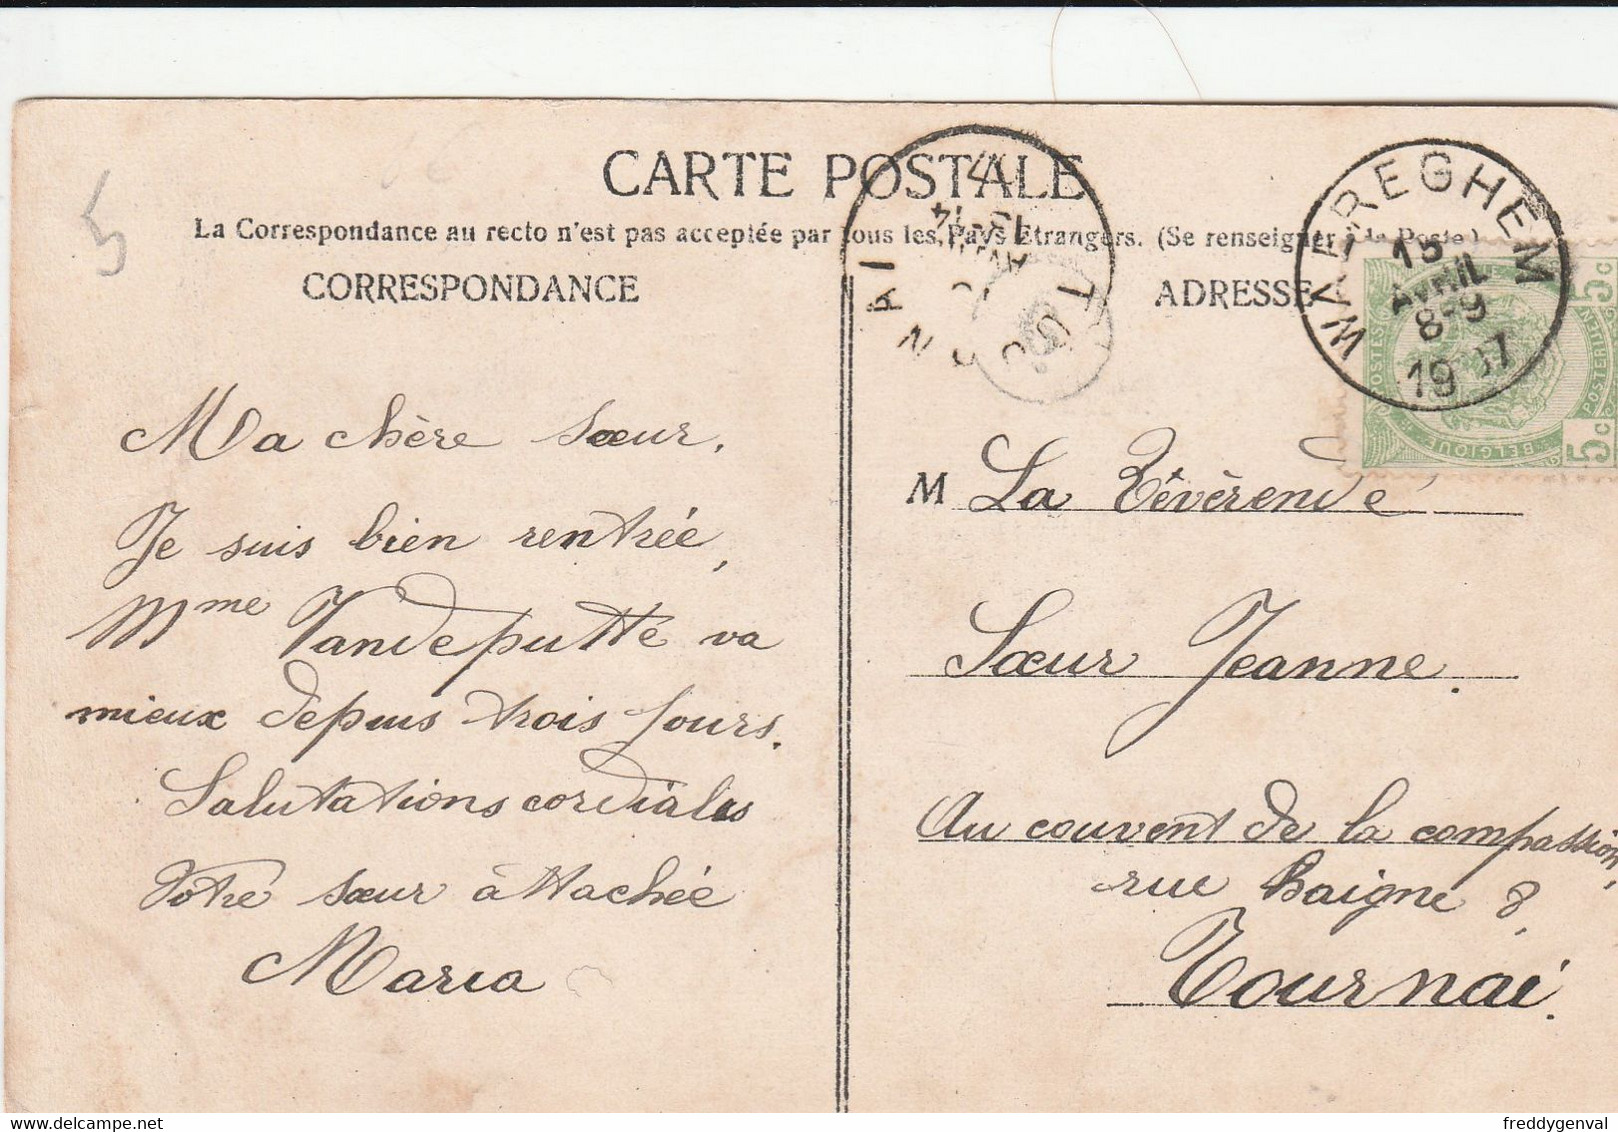 5
CARTE POSTALE
La Correspondance au recto n'est pas acceptée par tous les Pays Etrangers. (Se renseigner à la Poste.)
CORRESPONDANCE
ADRESSE
WAEREGHEM
15
AVRIL
8-9
1907
5c
5c
POSTES
BELGIQUE
Ma chère sœur,
Je suis bien rentrée,
Mme Vandeputte va
mieux depuis trois jours.
Salutations cordiales
Votre sœur attachée
Maria
M La Révérende
Sœur Jeanne.
Au couvent de la compassion,
rue Haigne 8,
Tournai.
freddygenval